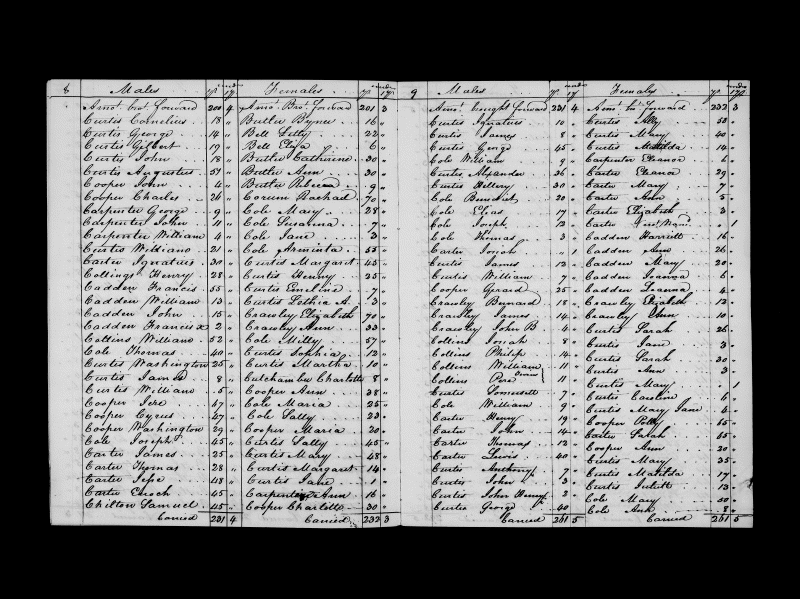 8 Males Females
Amot. brot. forward 200 4 Amot. Brot. forward 201 3
Curtis Cornelius 18 " Butler 16 "
Curtis George 14 " Bell Letty 22 "
Curtis Gilbert 19 " Bell Eliza 6 "
Curtis John 18 " Butler Catherine 30 "
Curtis Augustus 51 " Butler Ann 30 "
Cooper John 4 " Butler Rebecca 9 "
Cooper Charles 26 " Corum Rachael 70 "
Carpenter George 9 " Cole Mary 28 "
Carpenter John 11 " Cole Susanna 7 "
Carpenter William 4 " Cole Jane 3 "
Curtis William 21 " Cole Arminta 55 "
Carter Ignatius 30 " Curtis Margaret 45 "
Collings Henry 28 " Curtis Henny 25 "
Cadden Francis 55 " Curtis Emeline 7 "
Cadden William 13 " Curtis Lethia A. 3 "
Cadden John 15 " Crawley Elizabeth 70 "
Cadden Francis 2 " Crawley Ann 33 "
Collins William 52 " Cole Milly 57 "
Cole Thomas 40 " Curtis Sophia 12 "
Curtis Washington 25 " Curtis Martha 10 "
Curtis James 8 " Cutchamber Charlotte 8 "
Curtis William 5 " Cooper Ann 38 "
Cooper Jere 47 " Cole Maria 25 "
Cooper Cyrus 27 " Cole Sally 23 "
Cooper Washington 29 " Cooper Maria 20 "
Cole Joseph 45 " Curtis Letty 45 "
Carter James 25 " Curtis Mary 48 "
Carter Thomas 28 " Curtis Margaret 14 "
Carter Jesse 48 " Curtis Jane 1 "
Carter Enoch 45 " Carpenter Ann 16 "
Chilton Samuel 45 " Cooper Charlotte 30 "
Carried 231 4 Carried 232 3
9 Males Females
Amot. brought forward 231 4 Amot. bt. forward 232 3
Curtis Ignatius 10 " Curtis Ally 50 "
Curtis James 8 " Curtis Mary 40 "
Curtis George 45 " Curtis Matilda 14 "
Cole William 9 " Carpenter Eleanor 6 "
Curtis Alexander 26 " Carter Eleanor 29 "
Curtis Hillery 30 " Carter Mary 7 "
Cole Benedict 20 " Carter Ann 5 "
Cole Elias 17 " Carter Elizabeth 3 "
Cole Joseph 13 " Carter " 1
Cole Thomas 3 " Cadden Harriett 16 "
Carter Josiah " 1 Cadden Ann 26 "
Curtis James 13 " Cadden Mary 20 "
Curtis William 7 " Cadden Joanna 6 "
Cooper Gerard 25 " Cadden Leanna 4 "
Crawley Bernard 18 " Crawley Elizabeth 12 "
Crawley James 14 " Crawley Ann 10 "
Crawley John B 4 " Curtis Sarah 26 "
Collins Josiah 8 " Curtis Jane 3 "
Collins Philip 14 " Curtis Sarah 30 "
Collins William 11 " Curtis Ann 3 "
Collins Pere 11 " Curtis Mary " 1
Curtis Somersett 7 " Curtis Caroline 6 "
Cole William 9 " Curtis Mary Jane 4 "
Carter Henry 19 " Cooper Polly 65 "
Carter John 14 " Carter Sarah 65 "
Carter Thomas 12 " Cooper Ann 20 "
Carter Lewis 40 " Curtis Mary 35 "
Curtis Anthony 7 " Curtis Matilda 17 "
Curtis John 3 " Curtis Juliett 13 "
Curtis John Henry 2 " Cole Mary 50 "
Curtis George 40 " Cole Ann 8 "
Carried 261 5 Carried 261 5